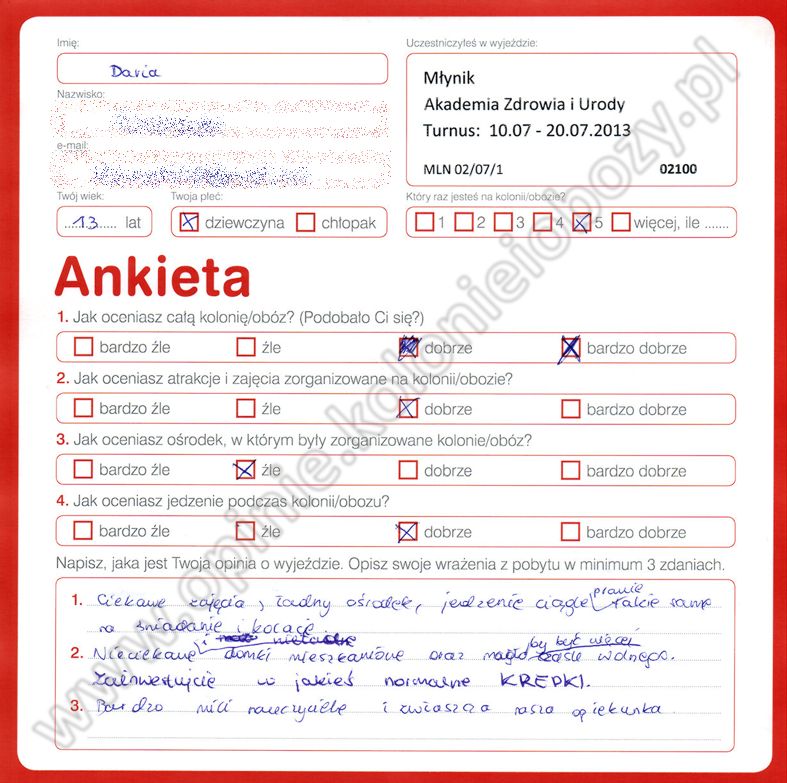 Imię:
Daria
Nazwisko:
e-mail:
Uczestniczyłeś w wyjeździe:
Młynik
Akademia Zdrowia i Urody
Turnus: 10.07 - 20.07.2013
MLN 02/07/1 02100
Twój wiek:
13 lat
Twoja płeć:
dziewczyna chłopak
Który raz jesteś na kolonii/obozie?
1 2 3 4 5 więcej, ile .......
Ankieta
1. Jak oceniasz całą kolonię/obóz? (Podobało Ci się?)
bardzo źle źle dobrze bardzo dobrze
2. Jak oceniasz atrakcje i zajęcia zorganizowane na kolonii/obozie?
bardzo źle źle dobrze bardzo dobrze
3. Jak oceniasz ośrodek, w którym były zorganizowane kolonie/obóz?
bardzo źle źle dobrze bardzo dobrze
4. Jak oceniasz jedzenie podczas kolonii/obozu?
bardzo źle źle dobrze bardzo dobrze
Napisz, jaka jest Twoja opinia o wyjeździe. Opisz swoje wrażenia z pobytu w minimum 3 zdaniach.
1. Ciekawe zajęcia, ładny ośrodek, jedzenie ciągle prawie takie same
na śniadanie i kolację
2. Nieciekawe i domki mieszkaniowe oraz mogło by być więcej czasu wolnego.
Zainwestujcie w jakieś normalne KREDKI.
3. Bardzo mili nauczyciele i zwłaszcza nasza opiekunka.
www.opinie.kolonieiobozy.pl